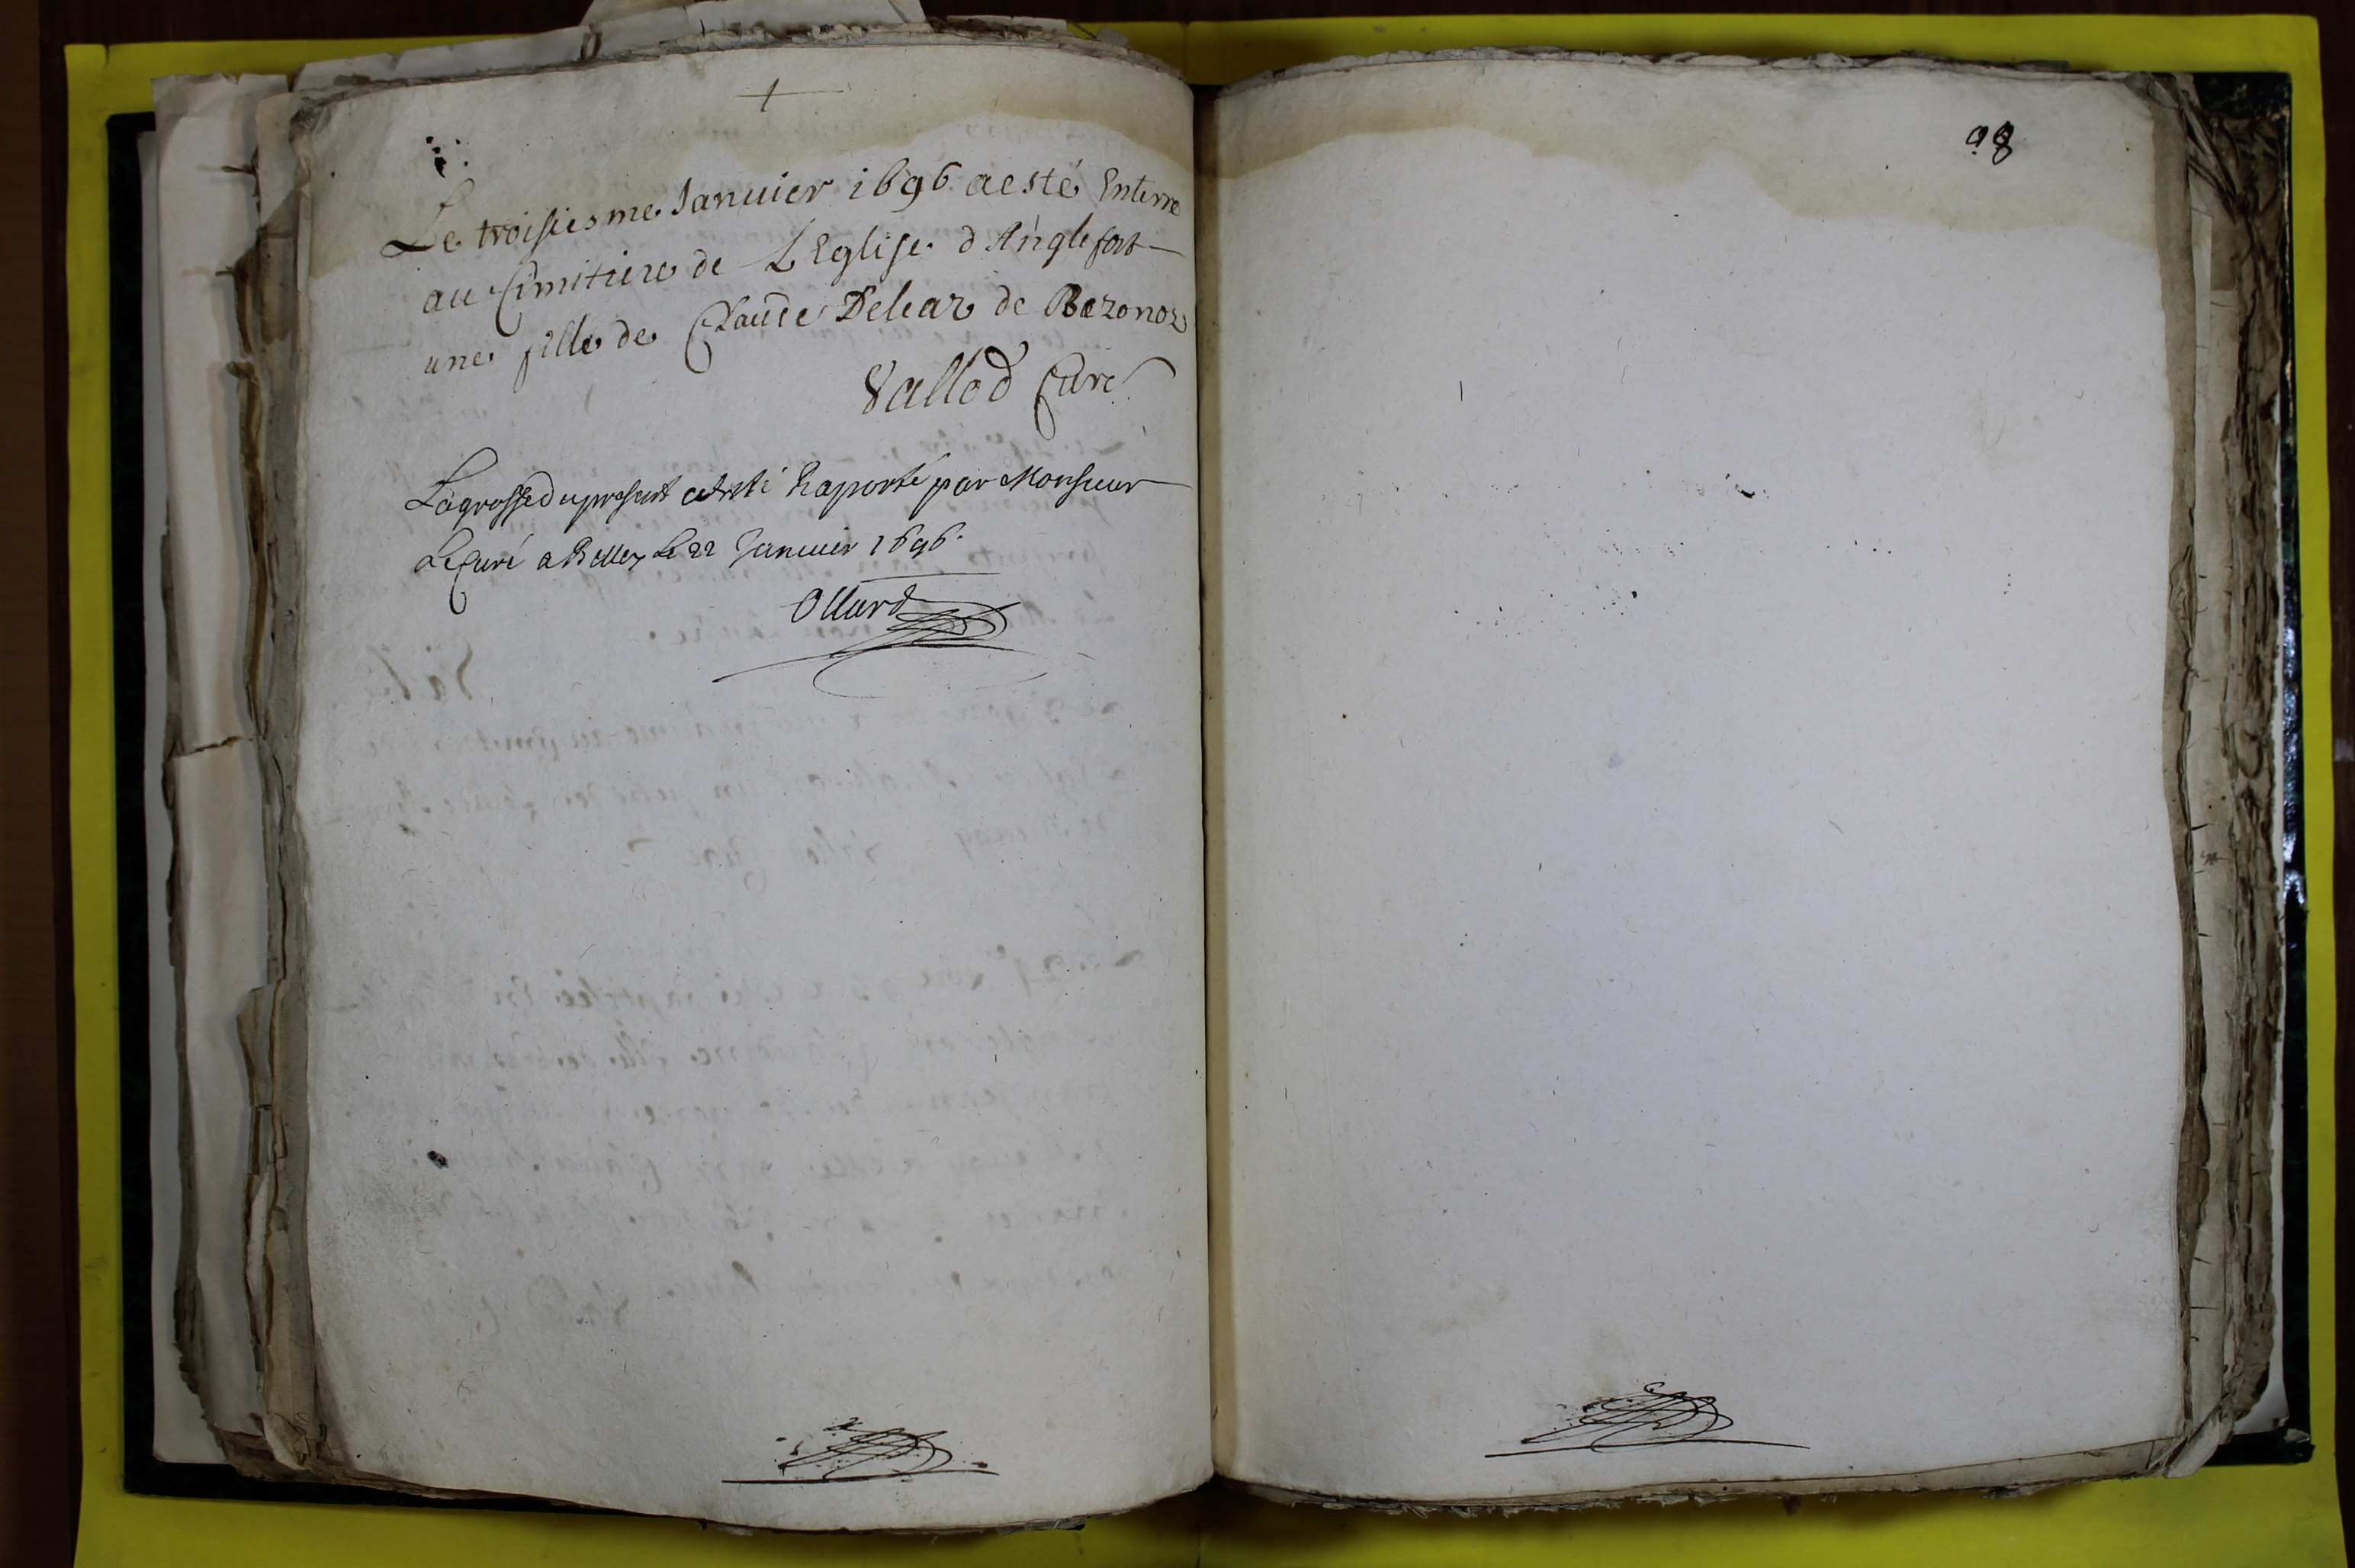 Le troisiesme Januier 1696 a esté Enterre
au Cimitiere de L'Eglise d'Anglefort
une fille de Claude Deleaz de Bezonoz
Vallod Curé
La grosse du present a esté Raporté par Monsieur
Le Curé a Belley Le 22 Januier 1696.
Ollard
98